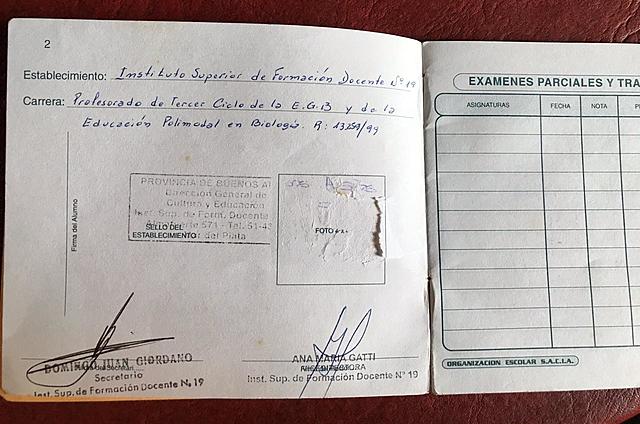 2
Establecimiento: Instituto Superior de Formación Docente Nº 19
Carrera: Profesorado de Tercer Ciclo de la E.G.B y de la
Educación Polimodal en Biología. R: 13259/99
Firma del Alumno
PROVINCIA DE BUENOS AI
Dirección General de
Cultura y Educación
Inst. Sup. de Form. Docente
571 - Tel. 51-43
SELLO DEL
ESTABLECIMIENTO
del Plata
FOTO 4x4
DOMINGO JUAN GIORDANO
Secretario
Inst. Sup. de Formación Docente Nº 19
ANA MARIA GATTI
Inst. Sup. de Formación Docente Nº 19
EXAMENES PARCIALES Y TRA
ASIGNATURAS FECHA NOTA
ORGANIZACION ESCOLAR S.A.C.I.A.